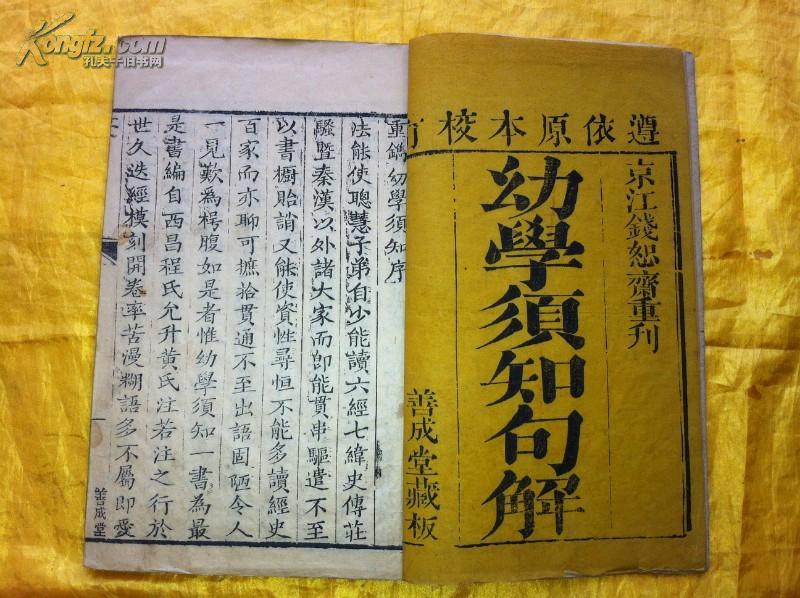 Kongfz.com
孔夫子旧书网
遵依原本校订
京江錢恕齋重刊
幼學須知句解
善成堂藏板
重鐫幼學須知序
法能使聰慧子弟自少能讀六經七緯史傳莊
騷暨秦漢以外諸大家而即能貫串驅遣不至
以書櫥貽誚又能使資性尋恒不能多讀經史
百家而亦聊可摭拾貫通不至出語固陋令人
一見歎為枵腹如是者惟幼學須知一書為最
是書編自西昌程氏允升黃氏注若注之行於
世久迭經模刻開卷率苦漫糊語多不屬即愛
善成堂